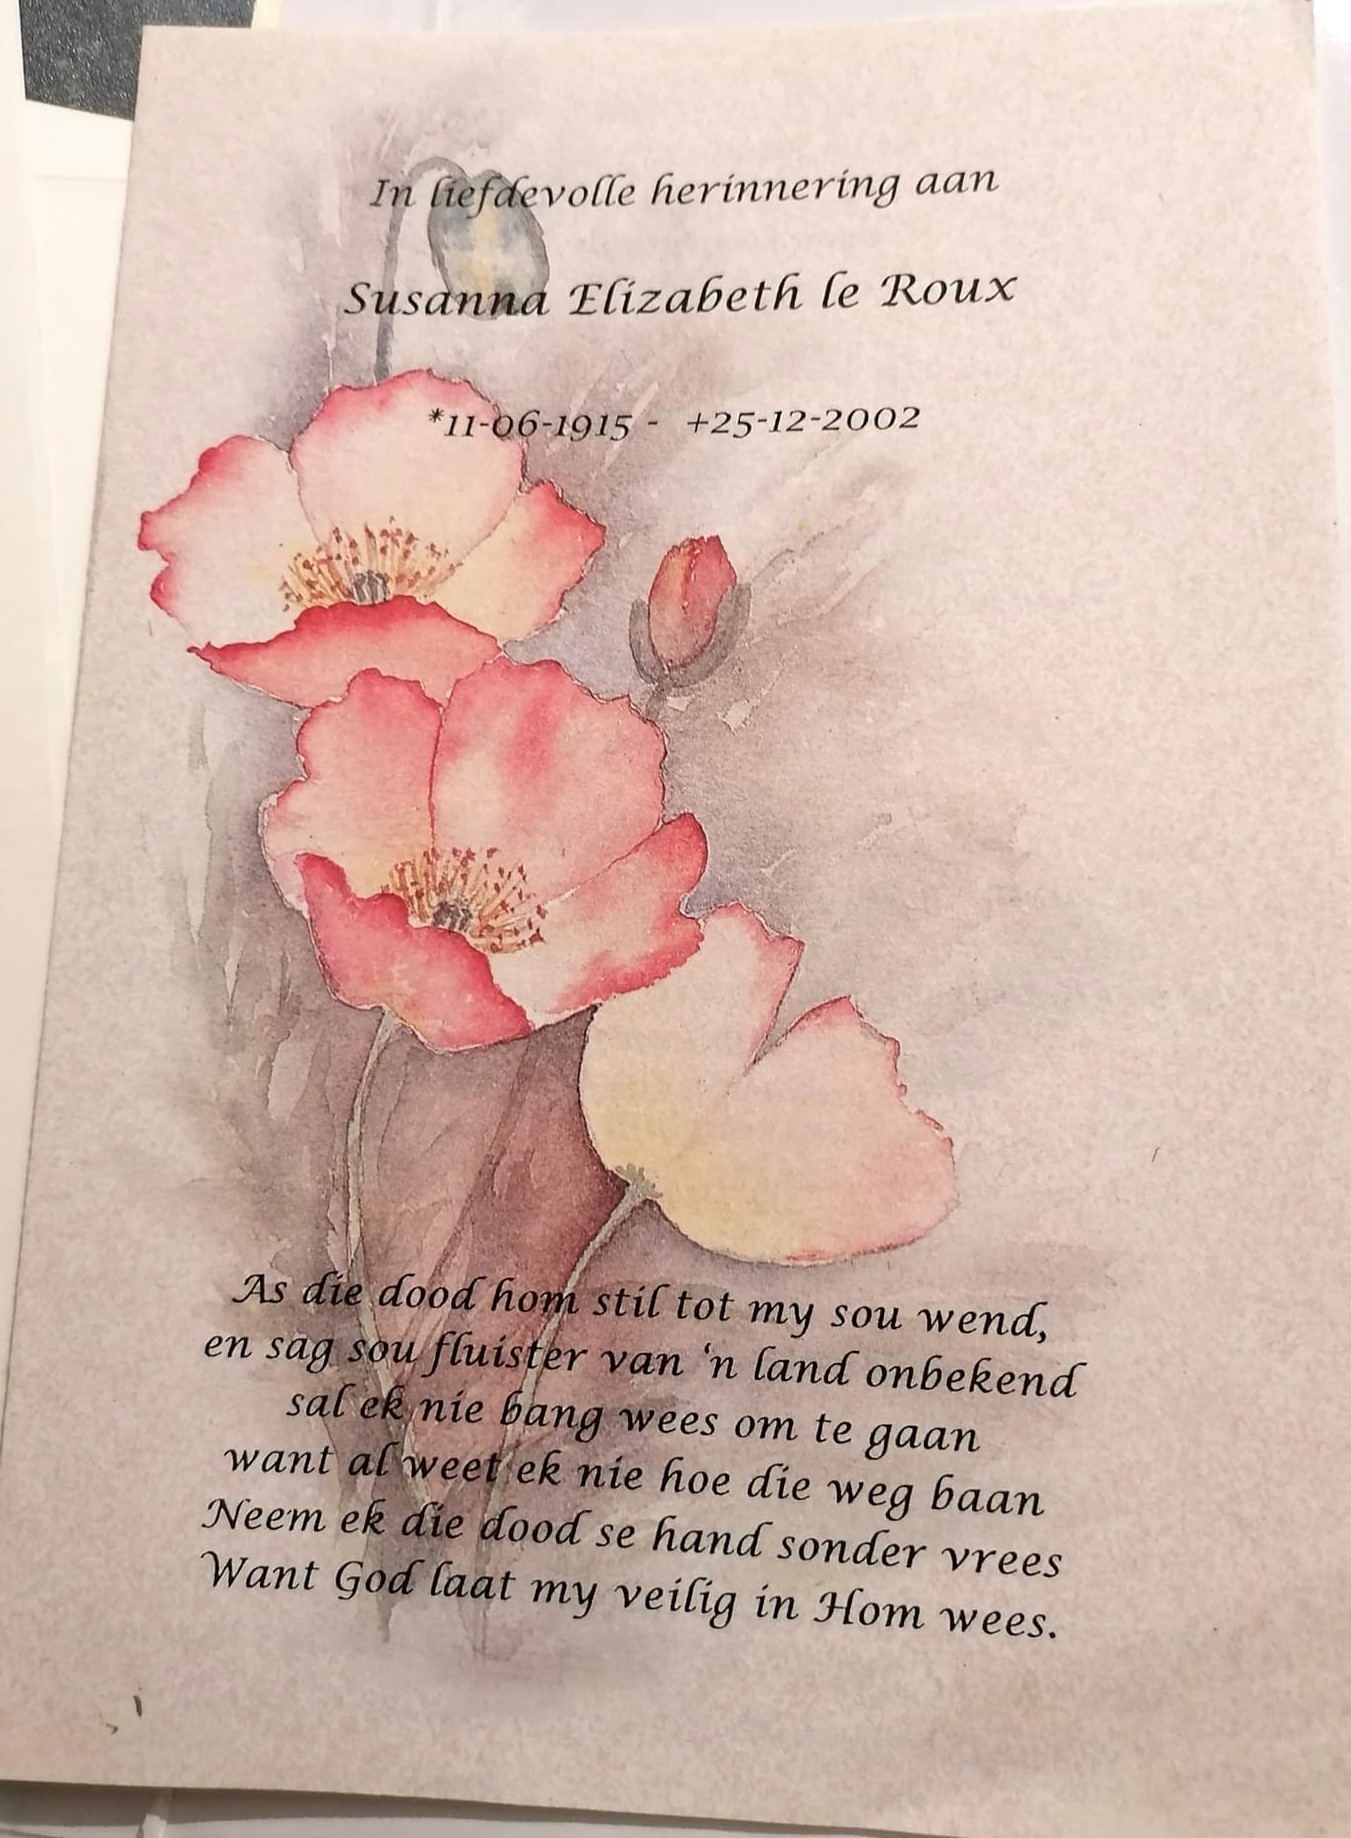 In liefdevolle herinnering aan
Susanna Elizabeth le Roux
*11-06-1915 - +25-12-2002
As die dood hom stil tot my sou wend,
en sag sou fluister van ‘n land onbekend
sal ek nie bang wees om te gaan
want al weet ek nie hoe die weg baan
Neem ek die dood se hand sonder vrees
Want God laat my veilig in Hom wees.